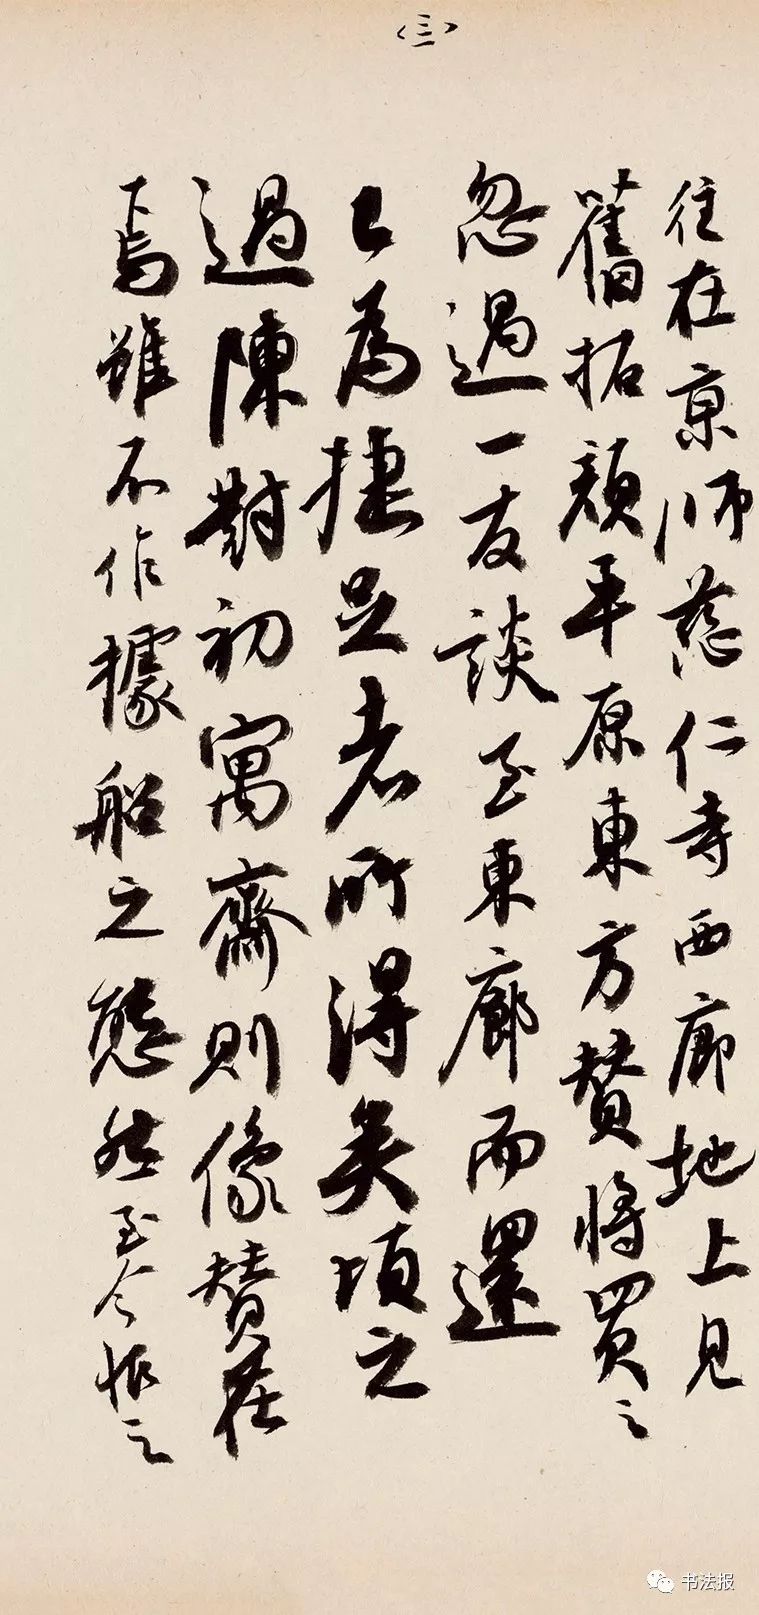 〈三〉
往在京師慈仁寺西廊地上見
舊拓顏平原東方贊將買之
忽過一友談至東廊而還
已為捷足者所得矣頃之
過陳對初寓齋則像贊在
焉雖不作據船之態然至今悵之
书法报